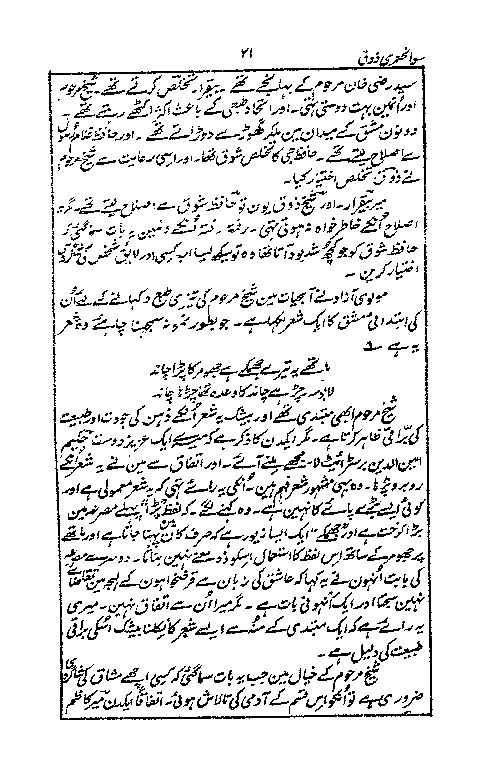 سوانحعمری ذوق ۲۱
سید رضی خان مرحوم کے بھانجے تھے بیقرار تخلص کرتے تھے شیخ مرحوم
اور اُنمین بہت دوستی تھی۔ اور اتحاد طبعی کے باعث اکثر اکٹھے رہتے تھے۔
دونون مشق کے میدان مین ملکر گھوڑے دوڑاتے تھے۔ اور حافظ غلام رسول
سے اصلاح لیتے تھے۔ حافظ جی کا تخلص شوق تھا۔ اور اسی رعایت سے شیخ مرحوم
نے ذوق تخلص اختیار کیا۔
میر بیقرار۔ اور شیخ ذوق یون تو حافظ شوق سے اصلاح لیتے تھے۔ مگر
اصلاح اُنکے خاطر خواہ نہ ہوتی تھی۔ رفتہ رفتہ اُنکے ذہنمین یہ بات سمائی کہ
حافظ شوق کو جو کچھ شدبود آتا تھا وہ تو سیکھ لیا اب کسی اور لایق شخص کی شاگردی
اختیار کرین۔
مولوی آزاد نے آبحیات مین شیخ مرحوم کی تیزی طبع دکہانے کے لیے اُن
کی ابتدائی مشق کا ایک شعر لکہا ہے۔ جو بطور نمونہ سمجہنا چاہیے وہ شعر
یہ ہے
ماتھے پہ تیرے جھمکے ہے جھومر کا پڑا چاند
لا بوسہ چڑھے چاند کا وعدہ تھا چڑھا چاند
شیخ مرحوم ابھی مبتدی تھے اور بیشک یہ شعر اُنکے ذہن کی جودت اور طبیعت
کی برّاقی ظاہر کرتا ہے۔ مگر ایکدن کا ذکر ہے کہ میرے ایک عزیز دوست حکیم
امین الدین بیرسٹر ایٹ لا مجھسے ملنے آئے۔ اور اتفاق سے مین نے یہ شعر اُنکے
روبرو پڑھا۔ وہ بھی مشہور شعر فہم ہین۔ اُنکی یہ رائے تھی کہ یہ شعر معمولی ہے اور
کوئی ایسے بڑے پائے کا نہین ہے۔ وہ کہنے لگے کہ لفظ پڑا پہلے مصرعہ مین
بڑا کرخت ہے اور جھمکے ایک ایسا زیور ہے کہ صرف کان مین پہنا جاتا ہے اور ماتھے
پر جھومر کے ساتھ اس لفظ کا استعمال اسکو ذومعنے نہین بناتا۔ دوسرے مصرعہ
کی بابت اُنہون نے یہ کہا کہ عاشق کی زبان سے قرضخواہون کے لہجہ مین تقاضا
نہین سجتا اور ایک اَنہونی بات ہے۔ مگر میرا اُن سے اتفاق نہین۔ میری
یہ رائے ہے کہ ایک مبتدی کے منہ سے ایسے شعر کا نکلنا بیشک اُسکی برّاقی
طبیعت کی دلیل ہے۔
شیخ مرحوم کے خیال مین جب یہ بات سمائی کہ کسی اچھے مشاق کی شاگردی
ضروری ہے تو اُنکو اس قسم کے آدمی کی تلاش ہوئی۔ اتفاقاً ایکدن میر کاظم